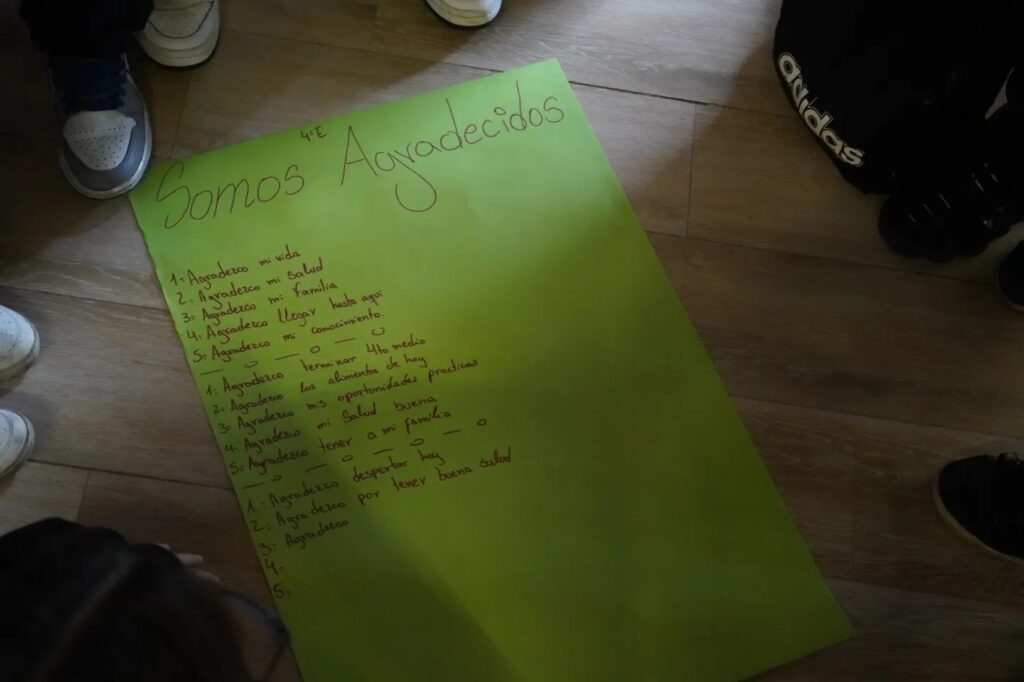 4=E
Somos Agradecidos
1= Agradezco mi vida
2= Agradezco mi Salud
3= Agradezco mi Familia
4= Agradezco llegar hasta aqui
5= Agradezco mi conocimiento.
1= Agradezco terminar 4to medio
2= Agradezco los alimentos de hoy
3= Agradezco mis oportunidades practicas
4= Agradezco mi Salud buena
5= Agradezco tener a mi familia
1= Agradezco despertar hoy
2= Agradezco por tener buena salud
3= Agradezco
4=
5=
adidas